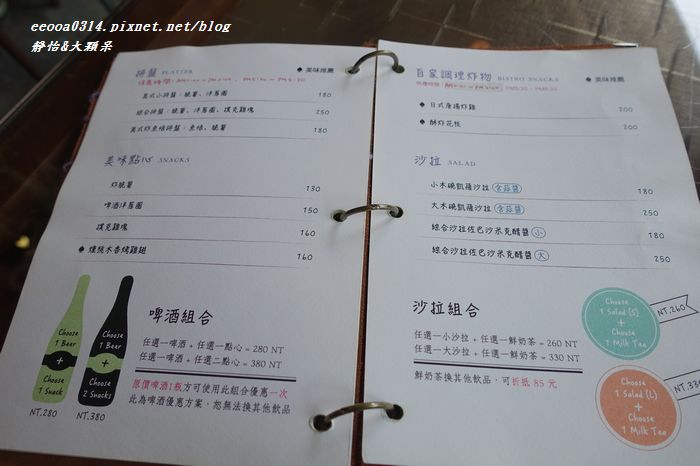 eeooa0314.pixnet.net/blog
靜怡&大顆呆
拼盤 PLATTER
◆ 美味推薦
美式小拼盤：脆薯、洋蔥圈 180
綜合拼盤：脆薯、洋蔥圈、撲克雞塊 250
英式炸魚條拼盤：魚條、脆薯 180
美味點心 SNACKS
炸脆薯 130
啤酒洋蔥圈 150
撲克雞塊 160
◆ 煙燻木香烤雞翅 160
啤酒組合
任選一啤酒 + 任選一點心 = 280 NT
任選一啤酒 + 任選二點心 = 380 NT
原價啤酒1瓶方可使用此組合優惠一次
此為啤酒優惠方案，恕無法換其他飲品
Choose
1 Beer
+
Choose
1 Snack
NT.280
Choose
1 Beer
+
Choose
2 Snacks
NT.380
自家調理炸物 BISTRO SNACKS
◆ 美味推薦
◆ 日式唐揚炸雞 200
◆ 酥炸花枝 200
沙拉 SALAD
小木碗凱薩沙拉 含蒜醬 180
大木碗凱薩沙拉 含蒜醬 250
綜合沙拉佐巴沙米克醋醬 小 180
綜合沙拉佐巴沙米克醋醬 大 250
沙拉組合
任選一小沙拉 + 任選一鮮奶茶 = 260 NT
任選一大沙拉 + 任選一鮮奶茶 = 330 NT
鮮奶茶換其他飲品，可折抵 85 元
Choose
1 Salad (S)
+
Choose
1 Milk Tea
NT.260
Choose
1 Salad (L)
+
Choose
1 Milk Tea
NT.33